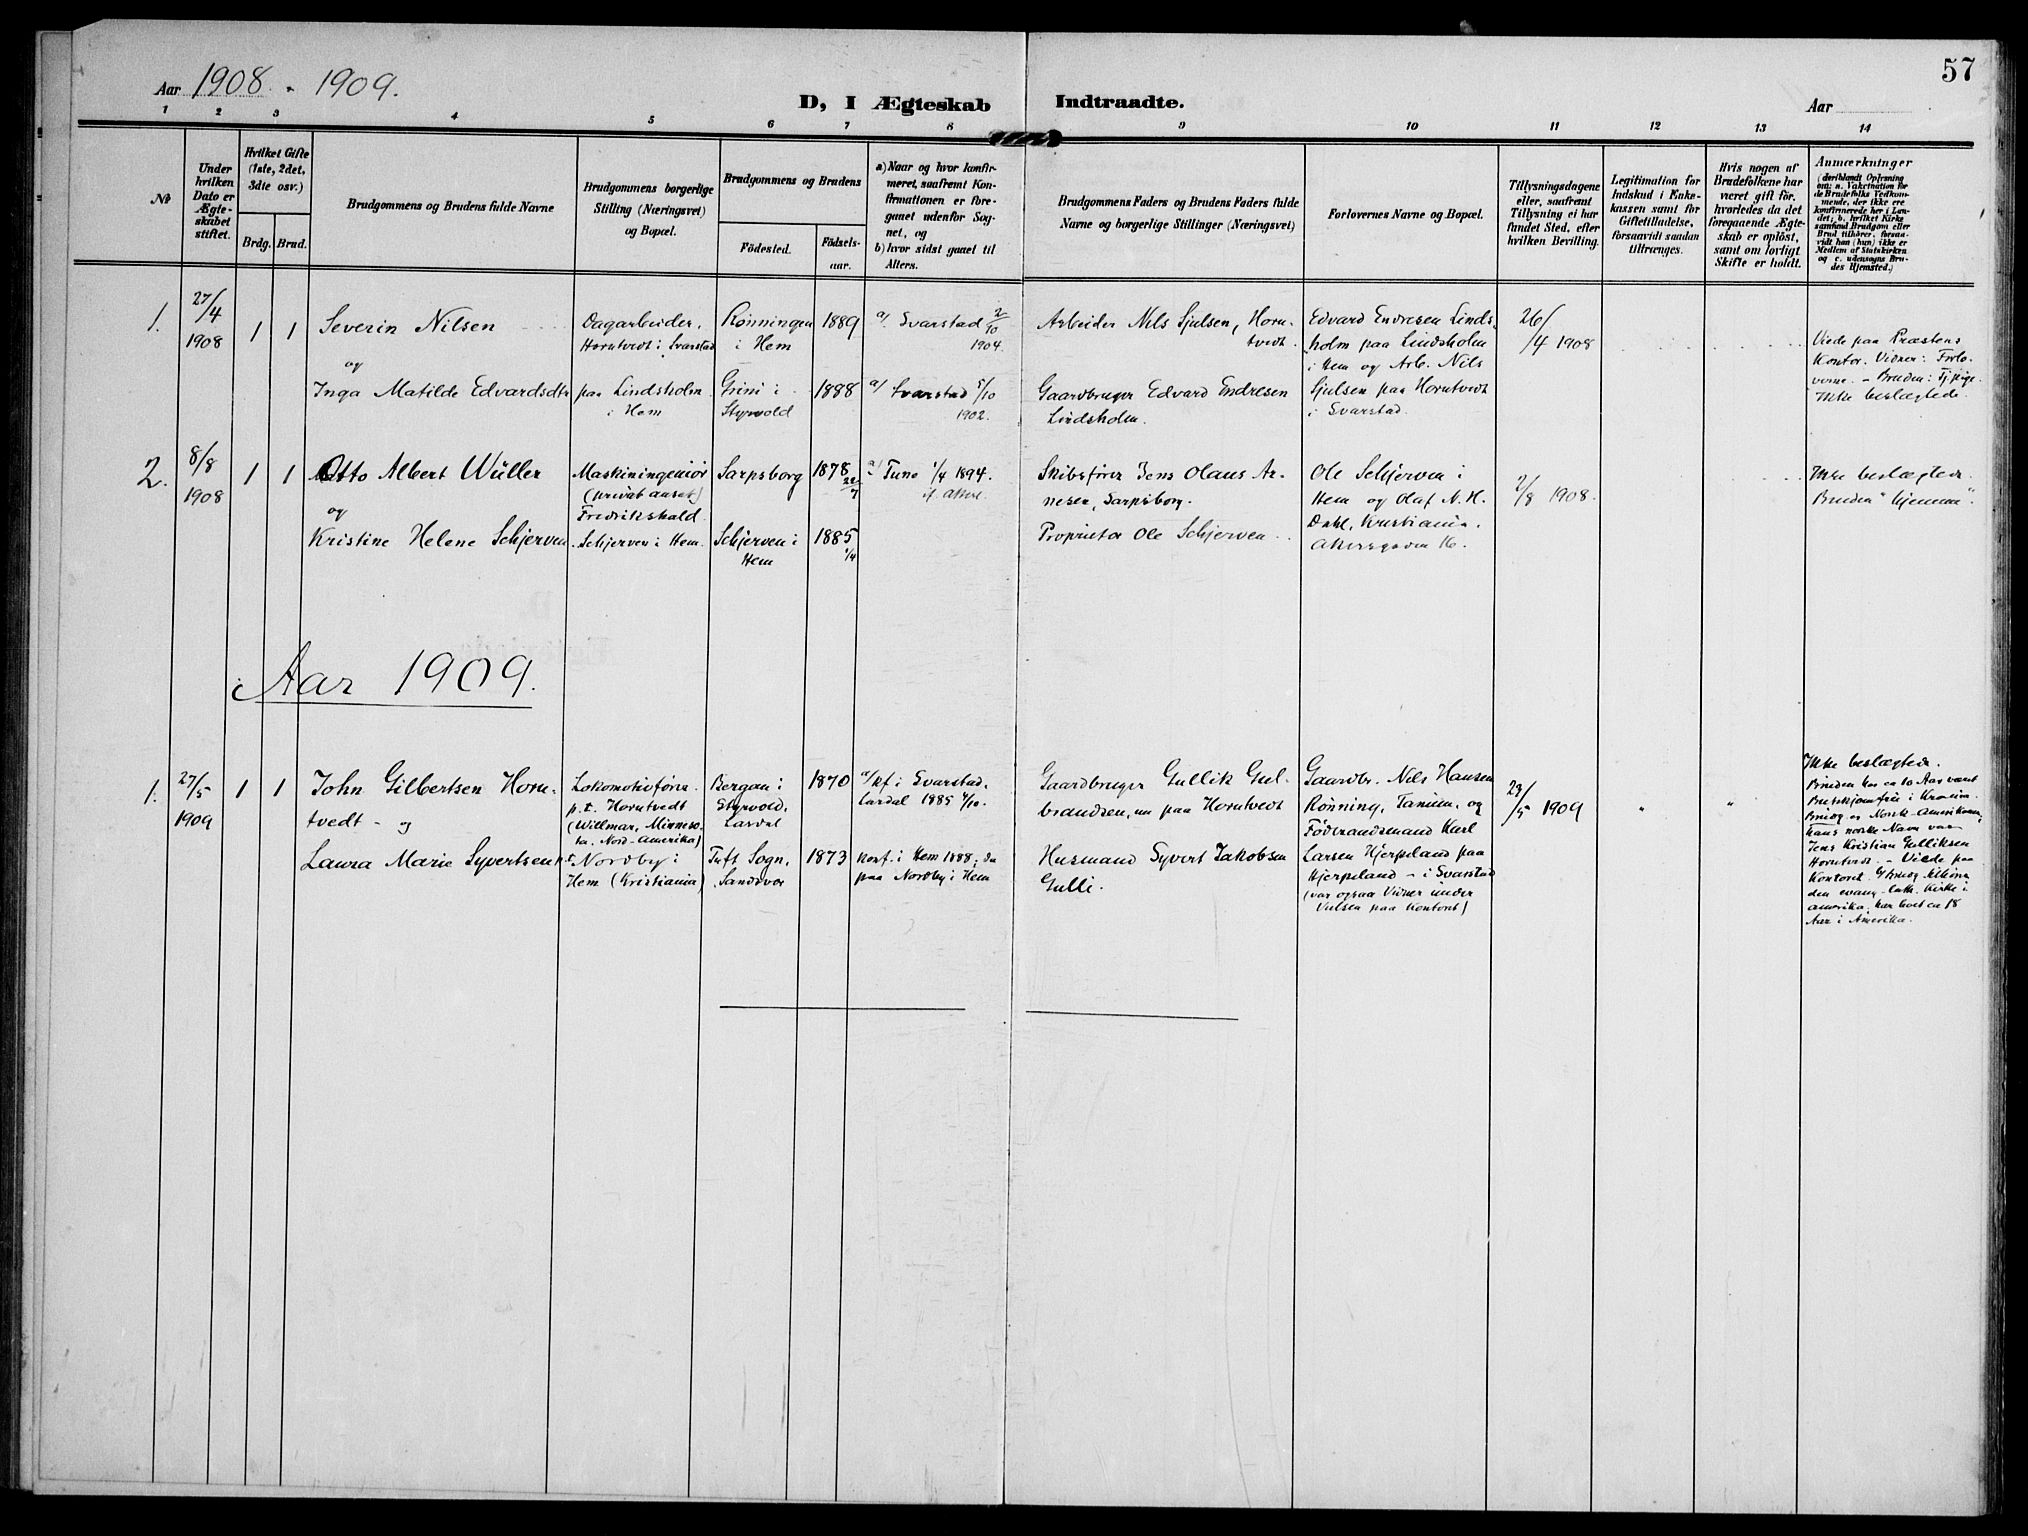 57
Aar 1908 - 1909.
D, I Ægteskab Indtraadte.
Aar
1 2 3 4 5 6 7 8 9 10 11 12 13 14
№
Under hvilken Dato er Ægteskabet stiftet.
Hvilket Gifte (1ste, 2det, 3die osv.)
Brdg. Brud.
Brudgommens og Brudens fulde Navne
Brudgommens borgerlige Stilling (Næringsvei) og Bopæl.
Brudgommens og Brudens
Födested.
Födselsaar.
a) Naar og hvor konfirmeret, saafremt Konfirmationen er foregaaet udenfor Sognet, og
b) hvor sidst gaaet til Alters.
Brudgommens Faders og Brudens Faders fulde Navne og borgerlige Stillinger (Næringsvei)
Forlovernes Navne og Bopæl.
Tillysningsdagene eller, saafremt Tillysning ei har fundet Sted, efter hvilken Bevilling.
Legitimation for Indskud i Enkekassen samt för Giftetilladelse, forsaavidt saadan tiltrænges.
Hvis nogen af Brudefolkene har været gift för, hvorledes da det foregaaende Ægteskab er oplöst, samt om lovligt Skifte er holdt.
Anmærkninger
(deriblandt Oplysning om: a. Vakcination for de Brudefolks Vedkommende, der ikke ere konfirmerede her i Landet; b. hvilket Kirkesamfund Brudgom eller Brud tilhörer, forsaavidt han (hun) ikke er Medlem af Statskirken og c. udensogns Brudes Hjemsted.)
1. 27/4 1908 1 1
Severin Nilsen
og
Inga Matilde Edvardsdtr
Dagarbeider, Horntvedt i Svarstad
paa Lindsholm i Hem
Rønningen i Hem
Grini i Styrvold
1889
1888
a/ Svarstad 2/10 1904.
a/ Svarstad 5/10 1902.
Arbeider Nils Sjulsen, Horntvedt.
Gaardbruger Edvard Endresen Lindsholm.
Edvard Endresen Lindsholm paa Lindsholm
i Hem og Arb. Nils
Sjulsen paa Horntvedt
i Svarstad.
26/4 1908
Viede paa Præstens
Kontor. Vidner: Forloverne. - Bruden: Tj.pige.
Ikke beslægtede.
2. 8/8 1908 1 1
Otto Albert Wüller
og
Kristine Helene Schjerven
Maskiningeniör
(privat ansat)
Fredrikshald.
Schjerven i Hem.
Sarpsborg
Schjerven i Hem
1878 22/7
1885 1/4
a/ Tune 1/4 1894.
Skibsfører Jens Olaus Arnesen, Sarpsborg.
Proprietær Ole Schjerven
Ole Schjerven i
Hem og Olaf N. H.
Dahl, Kristiania.
Akersgaden 16.
2/8 1908.
Ikke beslægtede.
Bruden "hjemme".
Aar 1909.
1. 27/5 1909 1 1
John Gilbertsen Horntvedt - og
Laura Marie Syvertsen
Lokomotivförer
p.t. Horntvedt
(Willmar, Minnesota, Nord-Amerika)
p.t. Nordby i
Hem (Kristiania)
Bergan i
Styrvold,
Lardal
Tuft Sogn,
Sandsvær
1870
1873
a/ kf. i Svarstad,
Lardal 1885 4/10.
konf. i Hem 1888; da
paa Nordby i Hem
Gaardbruger Gullik Gulbrandsen, nu paa Horntvedt
Husmand Syvert Jakobsen
Gulli.
Gaardbr. Nils Hansen
Rønning, Tanum, og
Föderaadsmand Karl
Larsen Hjerpeland paa
Hjerpeland - i Svarstad
(var ogsaa Vidner under
Vielsen paa Kontoret)
23/5 1909
" "
Ikke beslægtede.
Bruden har ca 10 Aar været
i Kr.ania.
Brudg. er Norsk-Amerikaner,
hans norske Navn var
Jens Kristian Gulliksen
Horntvedt. - Viede paa
Kontoret. Brudg. tilhører
den evang.-luth. Kirke i
Amerika, har boet ca 18
Aar i Amerika.